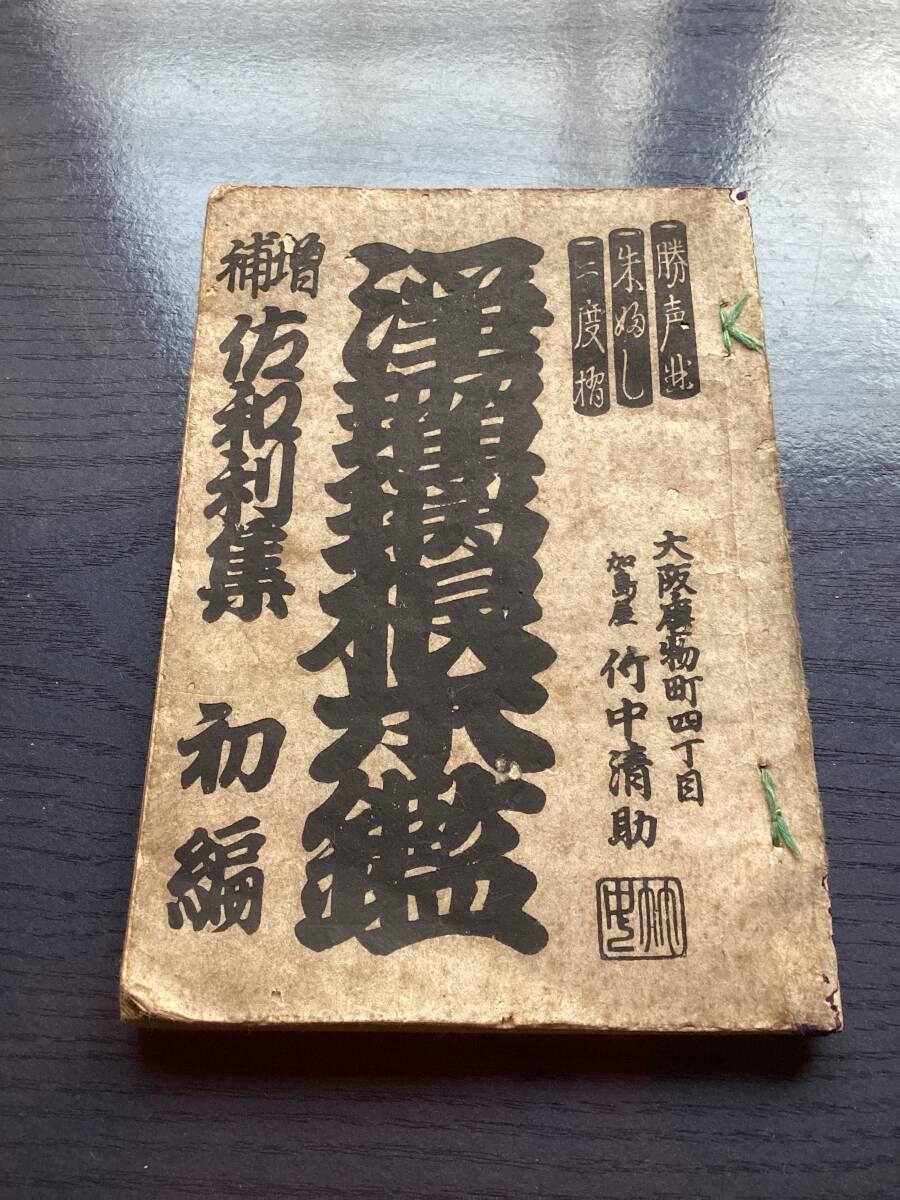 勝声並
朱婦し
二度摺
大阪唐物町四丁目
加島屋 竹中清助
竹中
淨瑠璃根本鑑
増補 佐和利集 初編